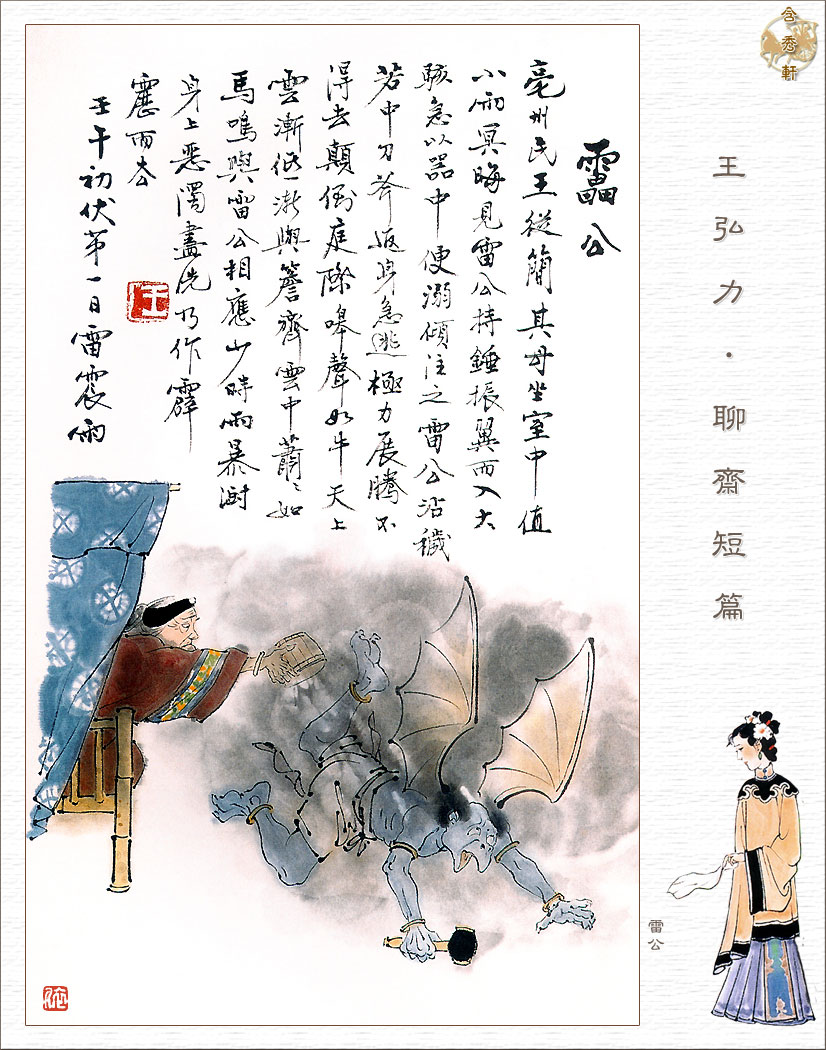 含秀軒
王弘力·聊齋短篇
靁公
亳州民王從簡其母坐室中值
小雨冥晦見雷公持錘振翼而入大
駭急以器中便溺傾注之雷公沾穢
若中刀斧返身急逃極力展騰不
得去顛倒庭際嗥聲如牛天上
雲漸低漸與簷齊雲中蕭〻如
馬鳴與雷公相應少時雨暴澍
身上惡濁盡洗乃作霹
靂而去
壬午初伏第一日雷震雨
王
雷公